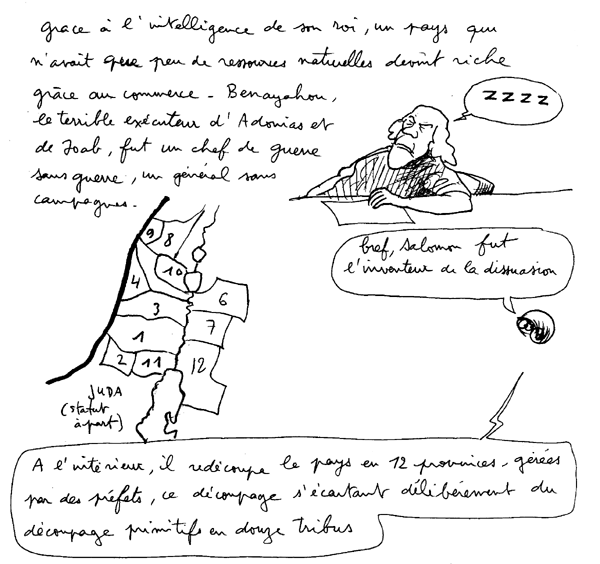 grace à l'intelligence de son roi, un pays qui
n'avait que peu de ressources naturelles devint riche
grâce au commerce - Benayahou,
le terrible exécuteur d'Adonias et
de Joab, fut un chef de guerre
sans guerre, un général sans
campagnes.
ZZZZ
bref, salomon fut
l'inventeur de la dissuasion
9
8
10
4
3
6
1
7
2
11
12
JUDA
(statut
à part)
A l'intérieur, il redécoupe le pays en 12 provinces, gérées
par des préfets, ce découpage s'écartant délibérément du
découpage primitifs en douze tribus